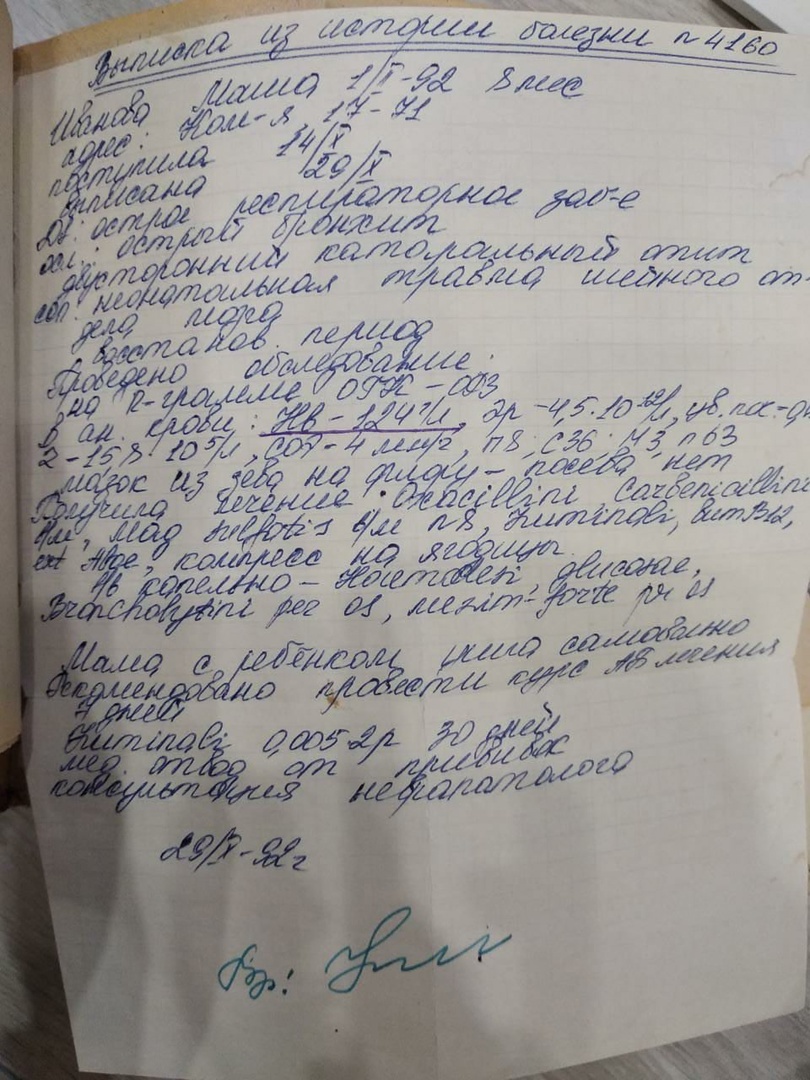 Выписка из истории болезни n 4160
Иванова Маша 1/II-92 8 мес
адрес: Ком-я, 17-71
поступила 14/X
выписана 29/X
Ds: острое респираторное заб-е
осл: острый бронхит
двусторонний катаральный отит
соп: неонатальная травма шейного от-
дела
восстанов. период
Проведено обследование:
на R-грамме ОГК -
в ан. крови: Нв - 124 г/л, Эр - 4,5·10¹²/л, цв. пок-
СОЭ - 4 мм/г, п8, с36
мазок из зева на флору - посева нет
Получила лечение: Oxacillini, Carbenicillini
в/м, Mag sulfatis в/м n8, вит B12,
ext Aloe, компресс на ягодицы
в/в капельно - глюкоза,
Broncholytini per os, mezim-forte per os
Мама с ребёнком ушла самовольно
Рекомендовано провести курс АБ лечения
7 дней
0,005 2р 30 дней
мед отвод от прививок
консультация невропатолога
29/X-92г
Вр: